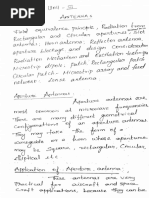 UNIT - III
ANTENNAS
Field equivalence principle, Radiation from
Rectangular and Circular apertures, Slot
antenna, Horn antenna, Reflector antennas
and design considerations
Radiation Mechanism and Excitation
Microstrip dipole, Patch, Rectangular patch
Circular patch. Microstrip array and feed
network. antenna
Aperture Antennas:
Aperture antennas are
most common at microwave frequencies.
There are many different geometrical
configurations of an aperture antennas
may take the form of a
waveguide or a horn whose aperture
may be square, rectangular, Circular,
elliptical etc.
Application of Aperture antenna:
These antennas are very
practical for aircraft and space
Craft applications, because they can be